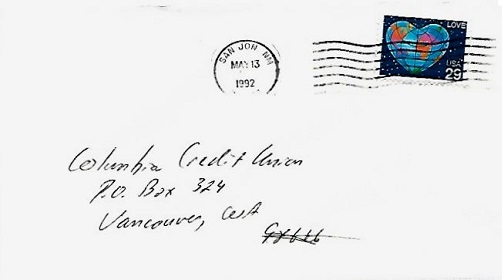 SAN JON NM
MAY 13
1992
LOVE
USA
29
Columbia Credit Union
P.O. Box 324
Vancouver, WA
98666